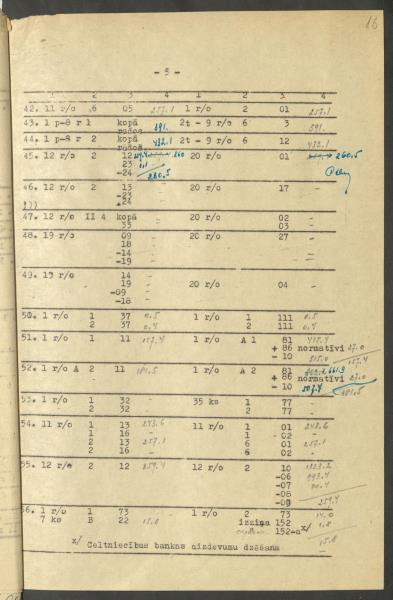 16
- 5 -
1 2 3 4 1 2 3 4
42. 11 r/o 6 05 257.1 1 r/o 2 01 257.1
43. 1 p-8 r 1 kopā 2t - 9 r/o 6 3
rašos 591. 591.
44. 1 p-8 r 2 kopā 432.1 2t - 9 r/o 6 12 432.1
45. 12 r/o 2 12 260 20 r/o 01 260.5
23
-24 260.5
46. 12 r/o 2 13 - 20 r/o 17 -
-23
-24
47. 12 r/o II 4 kopā 20 r/o 02
33 03
48. 19 r/o 09 20 r/o 27 -
18
-14
-19
49. 19 r/o 14
19 20 r/o 04 -
-09
-18
50. 1 r/o 1 37 0.5 1 r/o 1 111 0.5
2 37 0.4 2 111 0.4
51. 1 r/o 1 11 157.4 1 r/o A 1 81 415.4
+ 86 normatīvi 27.0
- 10 315.0 157.4
52. 1 r/o A 2 11 181.5 1 r/o A 2 81 661.9
+ 86 normatīvi 27.0
- 10 507.4 181.5
53. 1 r/o 1 32 - 35 ks 1 77 -
2 32 - 2 77 -
54. 11 r/o 1 13 243.6 11 r/o 1 01 243.6
1 16 - 1 02 -
2 13 257.1 6 01 257.1
2 16 - 6 02 -
55. 12 r/o 2 12 259.4 12 r/o 2 10 1323.2
-06 993.4
-07 70.4
-08 -
-09 259.4
56. 1 r/o 1 73 - 1 r/o 2 73 14.0
7 ks B 22 15.8 izziņa 152 1.8
152-a x/ 15.8
x/ Celtniecības bankas aizdevumu dzēšana